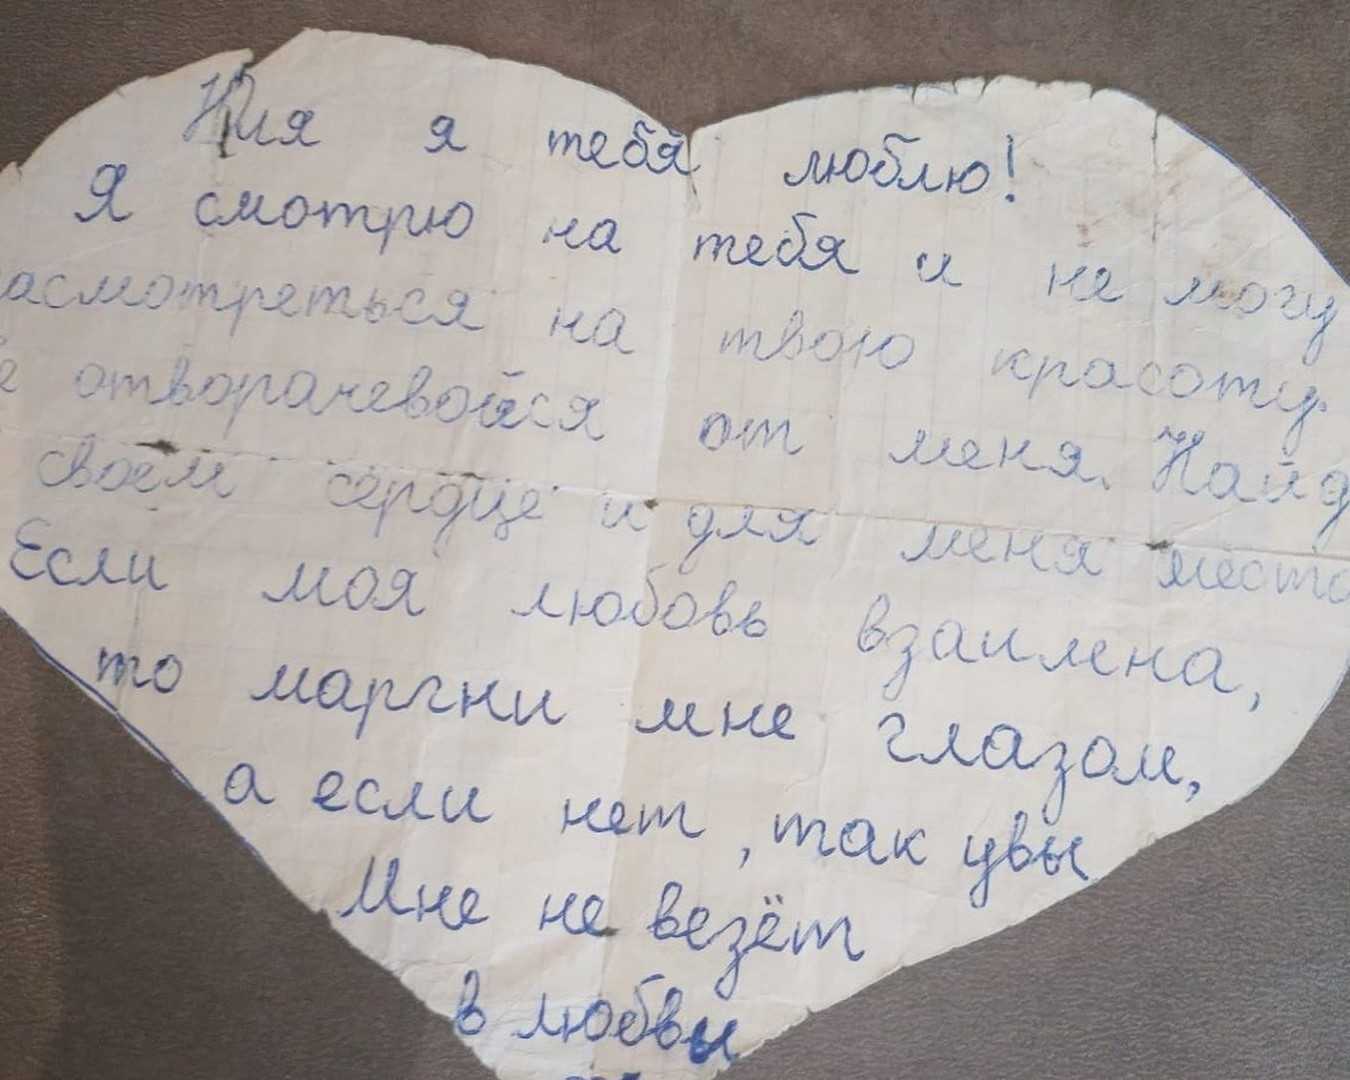 Юля я тебя люблю!
Я смотрю на тебя и не могу
насмотреться на твою красоту.
отворачевойся от меня. Найд
своём сердце и для меня место
Если моя любовь взаимена,
то маргни мне глазом,
а если нет, так увы
Мне не везёт
в любви